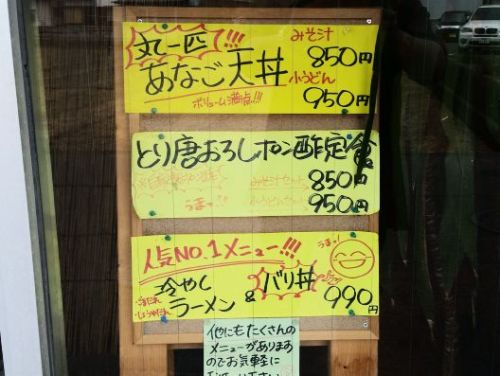 丸一匹!!! みそ汁 850円
あなご天丼 小うどん 950円
ボリューム満点!!!
とり唐おろしポン酢定食
みそ汁セット 850円
うまっ! 小うどんセット 950円
人気NO.1メニュー!!! うまっ!
冷やしラーメン & バリ丼 990円
他にもたくさんの
メニューがあります
のでお気軽に